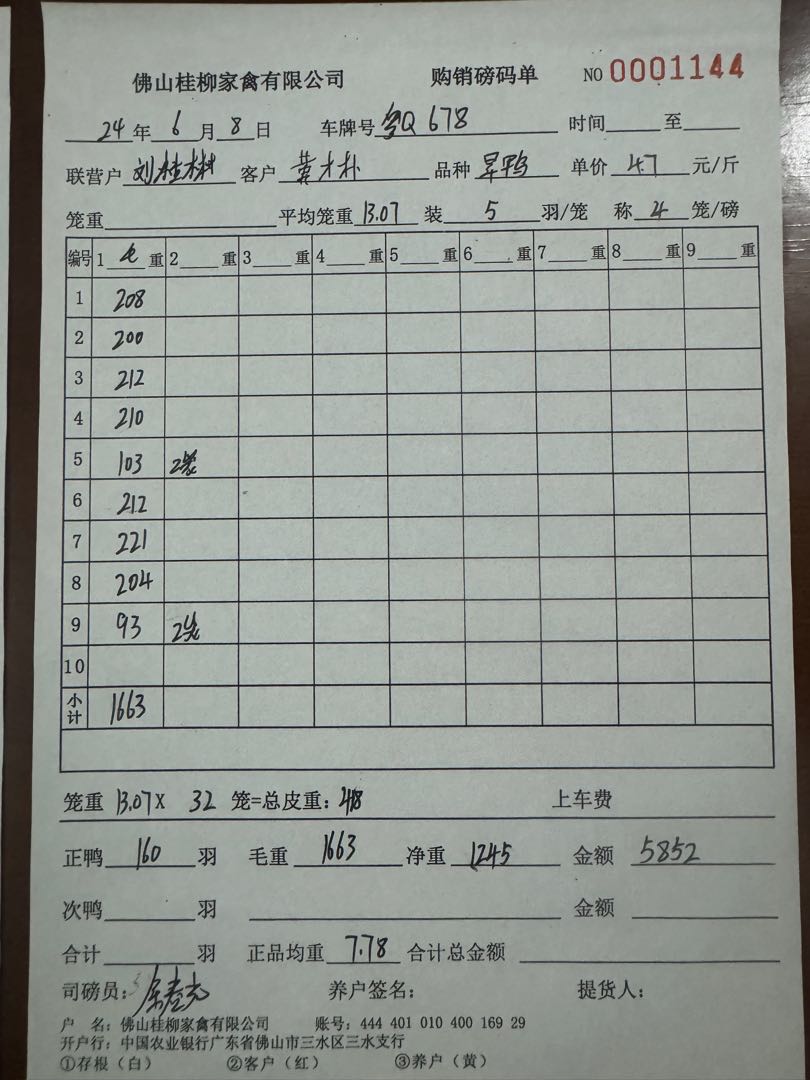 佛山桂柳家禽有限公司 购销磅码单 NO 0001144
24年 6月 8日 车牌号 粤Q 678 时间 至
联营户 刘桂彬 客户 黄才朴 品种 旱鸭 单价 4.7 元/斤
笼重 平均笼重 13.07 装 5 羽/笼 称 4 笼/磅
编号 1 毛 重 2 重 3 重 4 重 5 重 6 重 7 重 8 重 9 重
1 208
2 200
3 212
4 210
5 103 2笼
6 212
7 221
8 204
9 93 2笼
10
小计 1663
笼重 13.07 X 32 笼=总皮重: 418 上车费
正鸭 160 羽 毛重 1663 净重 1245 金额 5852
次鸭 羽 金额
合计 羽 正品均重 7.78 合计总金额
司磅员: 养户签名: 提货人:
户 名: 佛山桂柳家禽有限公司 账号: 444 401 010 400 169 29
开户行: 中国农业银行广东省佛山市三水区三水支行
①存根（白） ②客户（红） ③养户（黄）